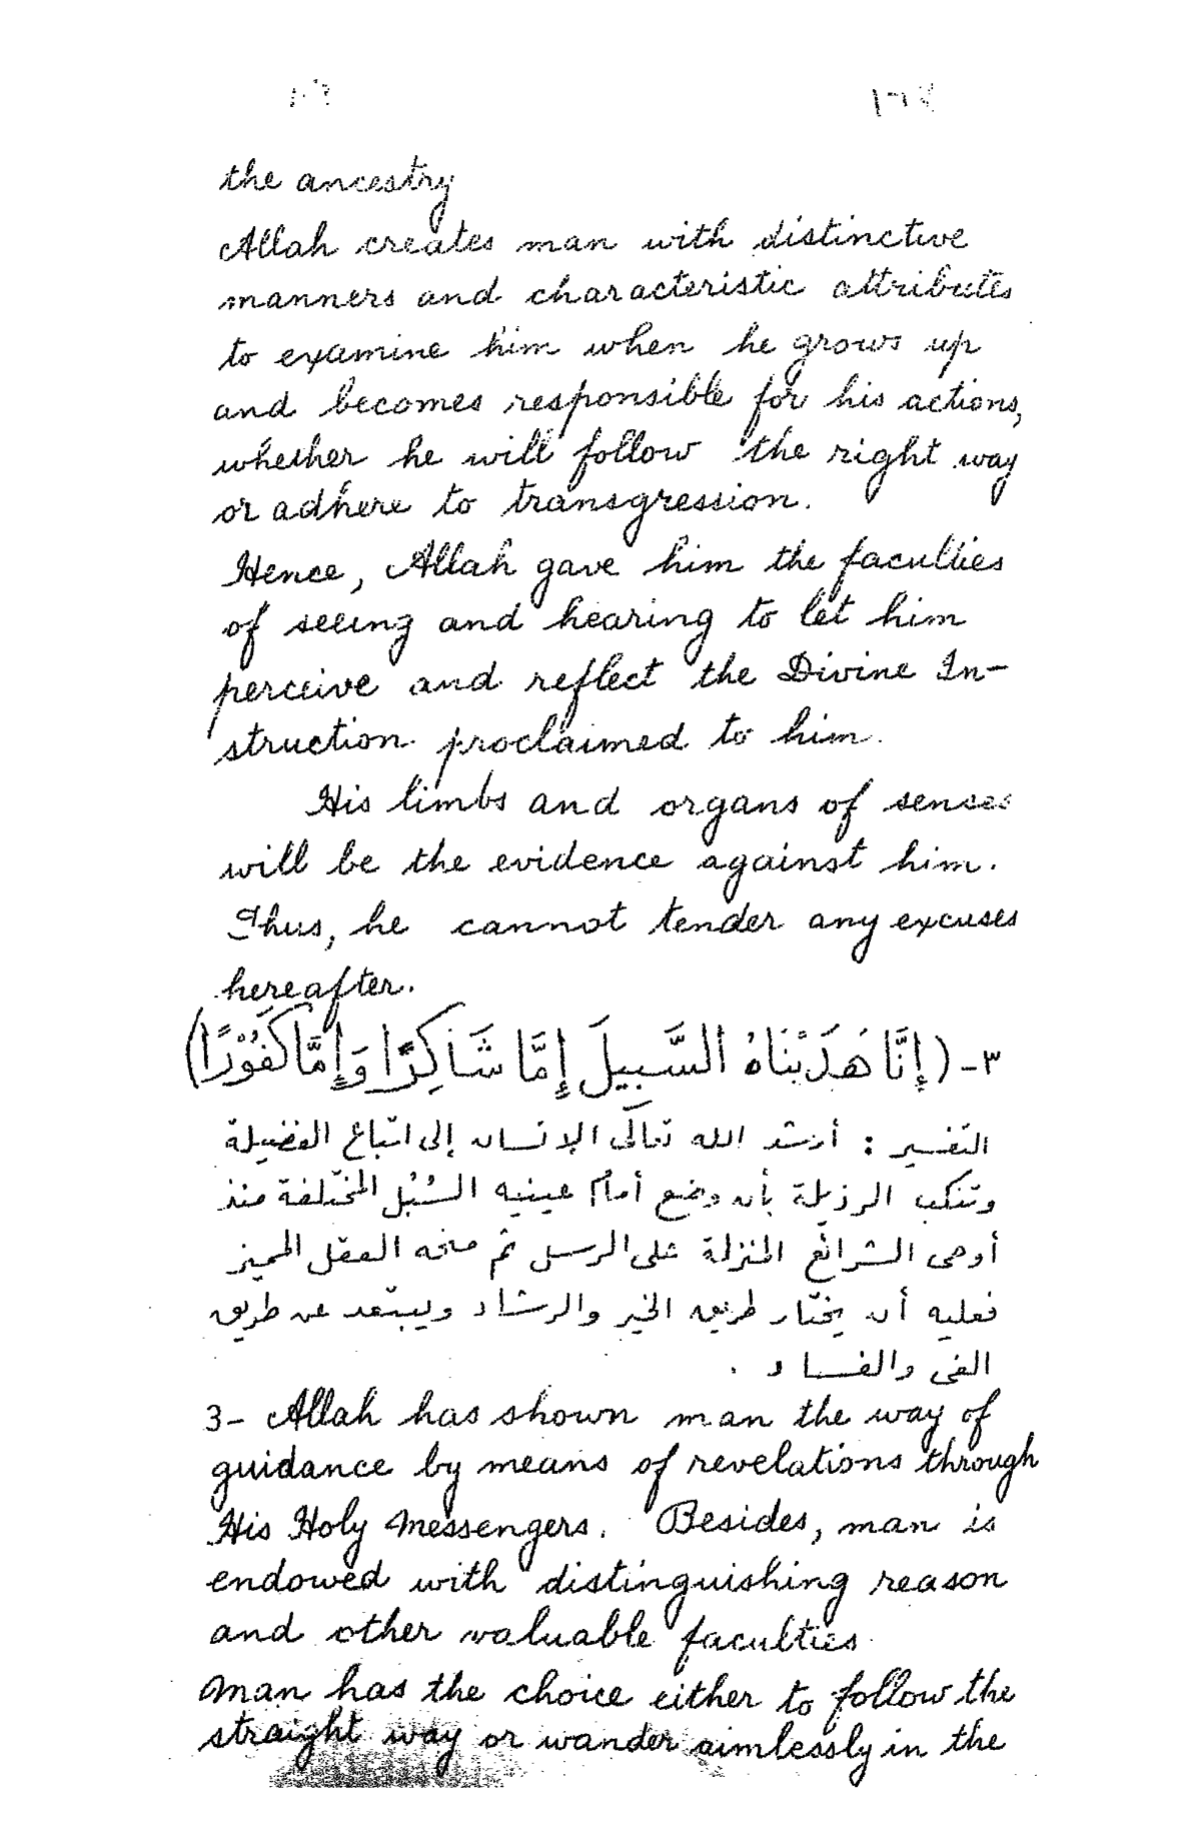 the ancestry
Allah creates man with distinctive
manners and characteristic attributes
to examine him when he grows up
and becomes responsible for his actions,
whether he will follow the right way
or adhere to transgression.
Hence, Allah gave him the faculties
of seeing and hearing to let him
perceive and reflect the Divine In-
struction proclaimed to him.
His limbs and organs of senses
will be the evidence against him.
Thus, he cannot tender any excuses
hereafter.
٣- (إِنَّا هَدَيْنَاهُ السَّبِيلَ إِمَّا شَاكِرًا وَإِمَّا كَفُوْرًا)
التفسير : أرشد الله تعالَى الإنسان إلى اتباع الفضيلة
وتنكب الرذيلة بأن وضع أمام عينيه السُبُل المختلفة منذ
أوحى الشرائع المنزلة على الرسل ثم منحه العقل المميز
فعليه أن يختار طريق الخير والرشاد ويبتعد عن طريق
الغى والفساد .
3- Allah has shown man the way of
guidance by means of revelations through
His Holy Messengers. Besides, man is
endowed with distinguishing reason
and other valuable faculties.
Man has the choice either to follow the
straight way or wander aimlessly in the